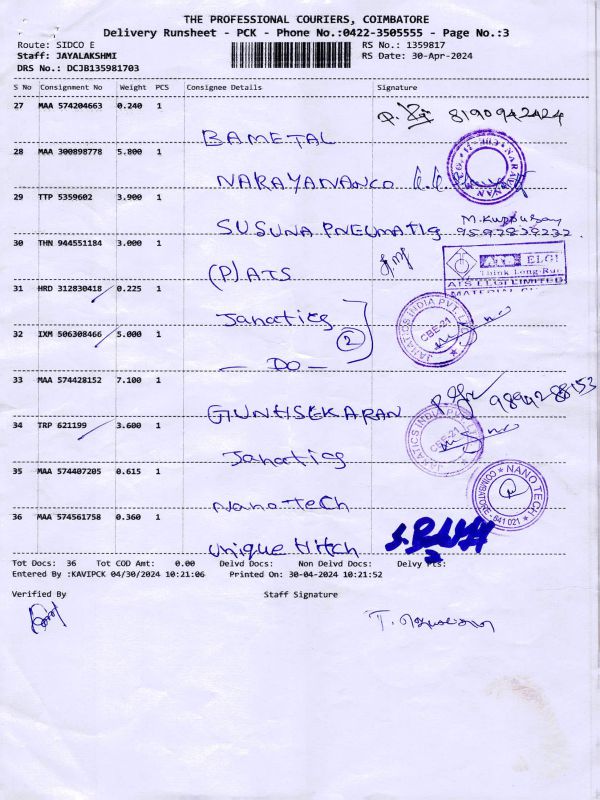 THE PROFESSIONAL COURIERS, COIMBATORE
Delivery Runsheet - PCK - Phone No.:0422-3505555 - Page No.:3
Route: SIDCO E RS No.: 1359817
Staff: JAYALAKSHMI RS Date: 30-Apr-2024
DRS No.: DCJB135981703
S No Consignment No Weight PCS Consignee Details Signature
27 MAA 574204663 0.240 1
8190942424
BAMETAL
28 MAA 300898778 5.800 1
NARAYANANCO
29 TTP 5359602 3.900 1
SUSUNA PNEUMATIG
30 THN 944551184 3.000 1
(P) ATS
ATS ELGI
Think Long-Run
ATS ELGI LIMITED
31 HRD 312830418 0.225 1
Janatics
JANATICS INDIA PVT.
CBE-21
32 IXM 506308466 5.000 1
2
— DO —
33 MAA 574428152 7.100 1
GUNHSEKARAN
9894288153
34 TRP 621199 3.600 1
Janatics
JANATICS INDIA PVT.
CBE-21
35 MAA 574407205 0.615 1
Nano-Tech
NANO TECH
COIMBATORE - 641 021
36 MAA 574561758 0.360 1
Unique Hitch
Tot Docs: 36 Tot COD Amt: 0.00 Delvd Docs: Non Delvd Docs: Delvy Pts:
Entered By :KAVIPCK 04/30/2024 10:21:06 Printed On: 30-04-2024 10:21:52
Verified By Staff Signature